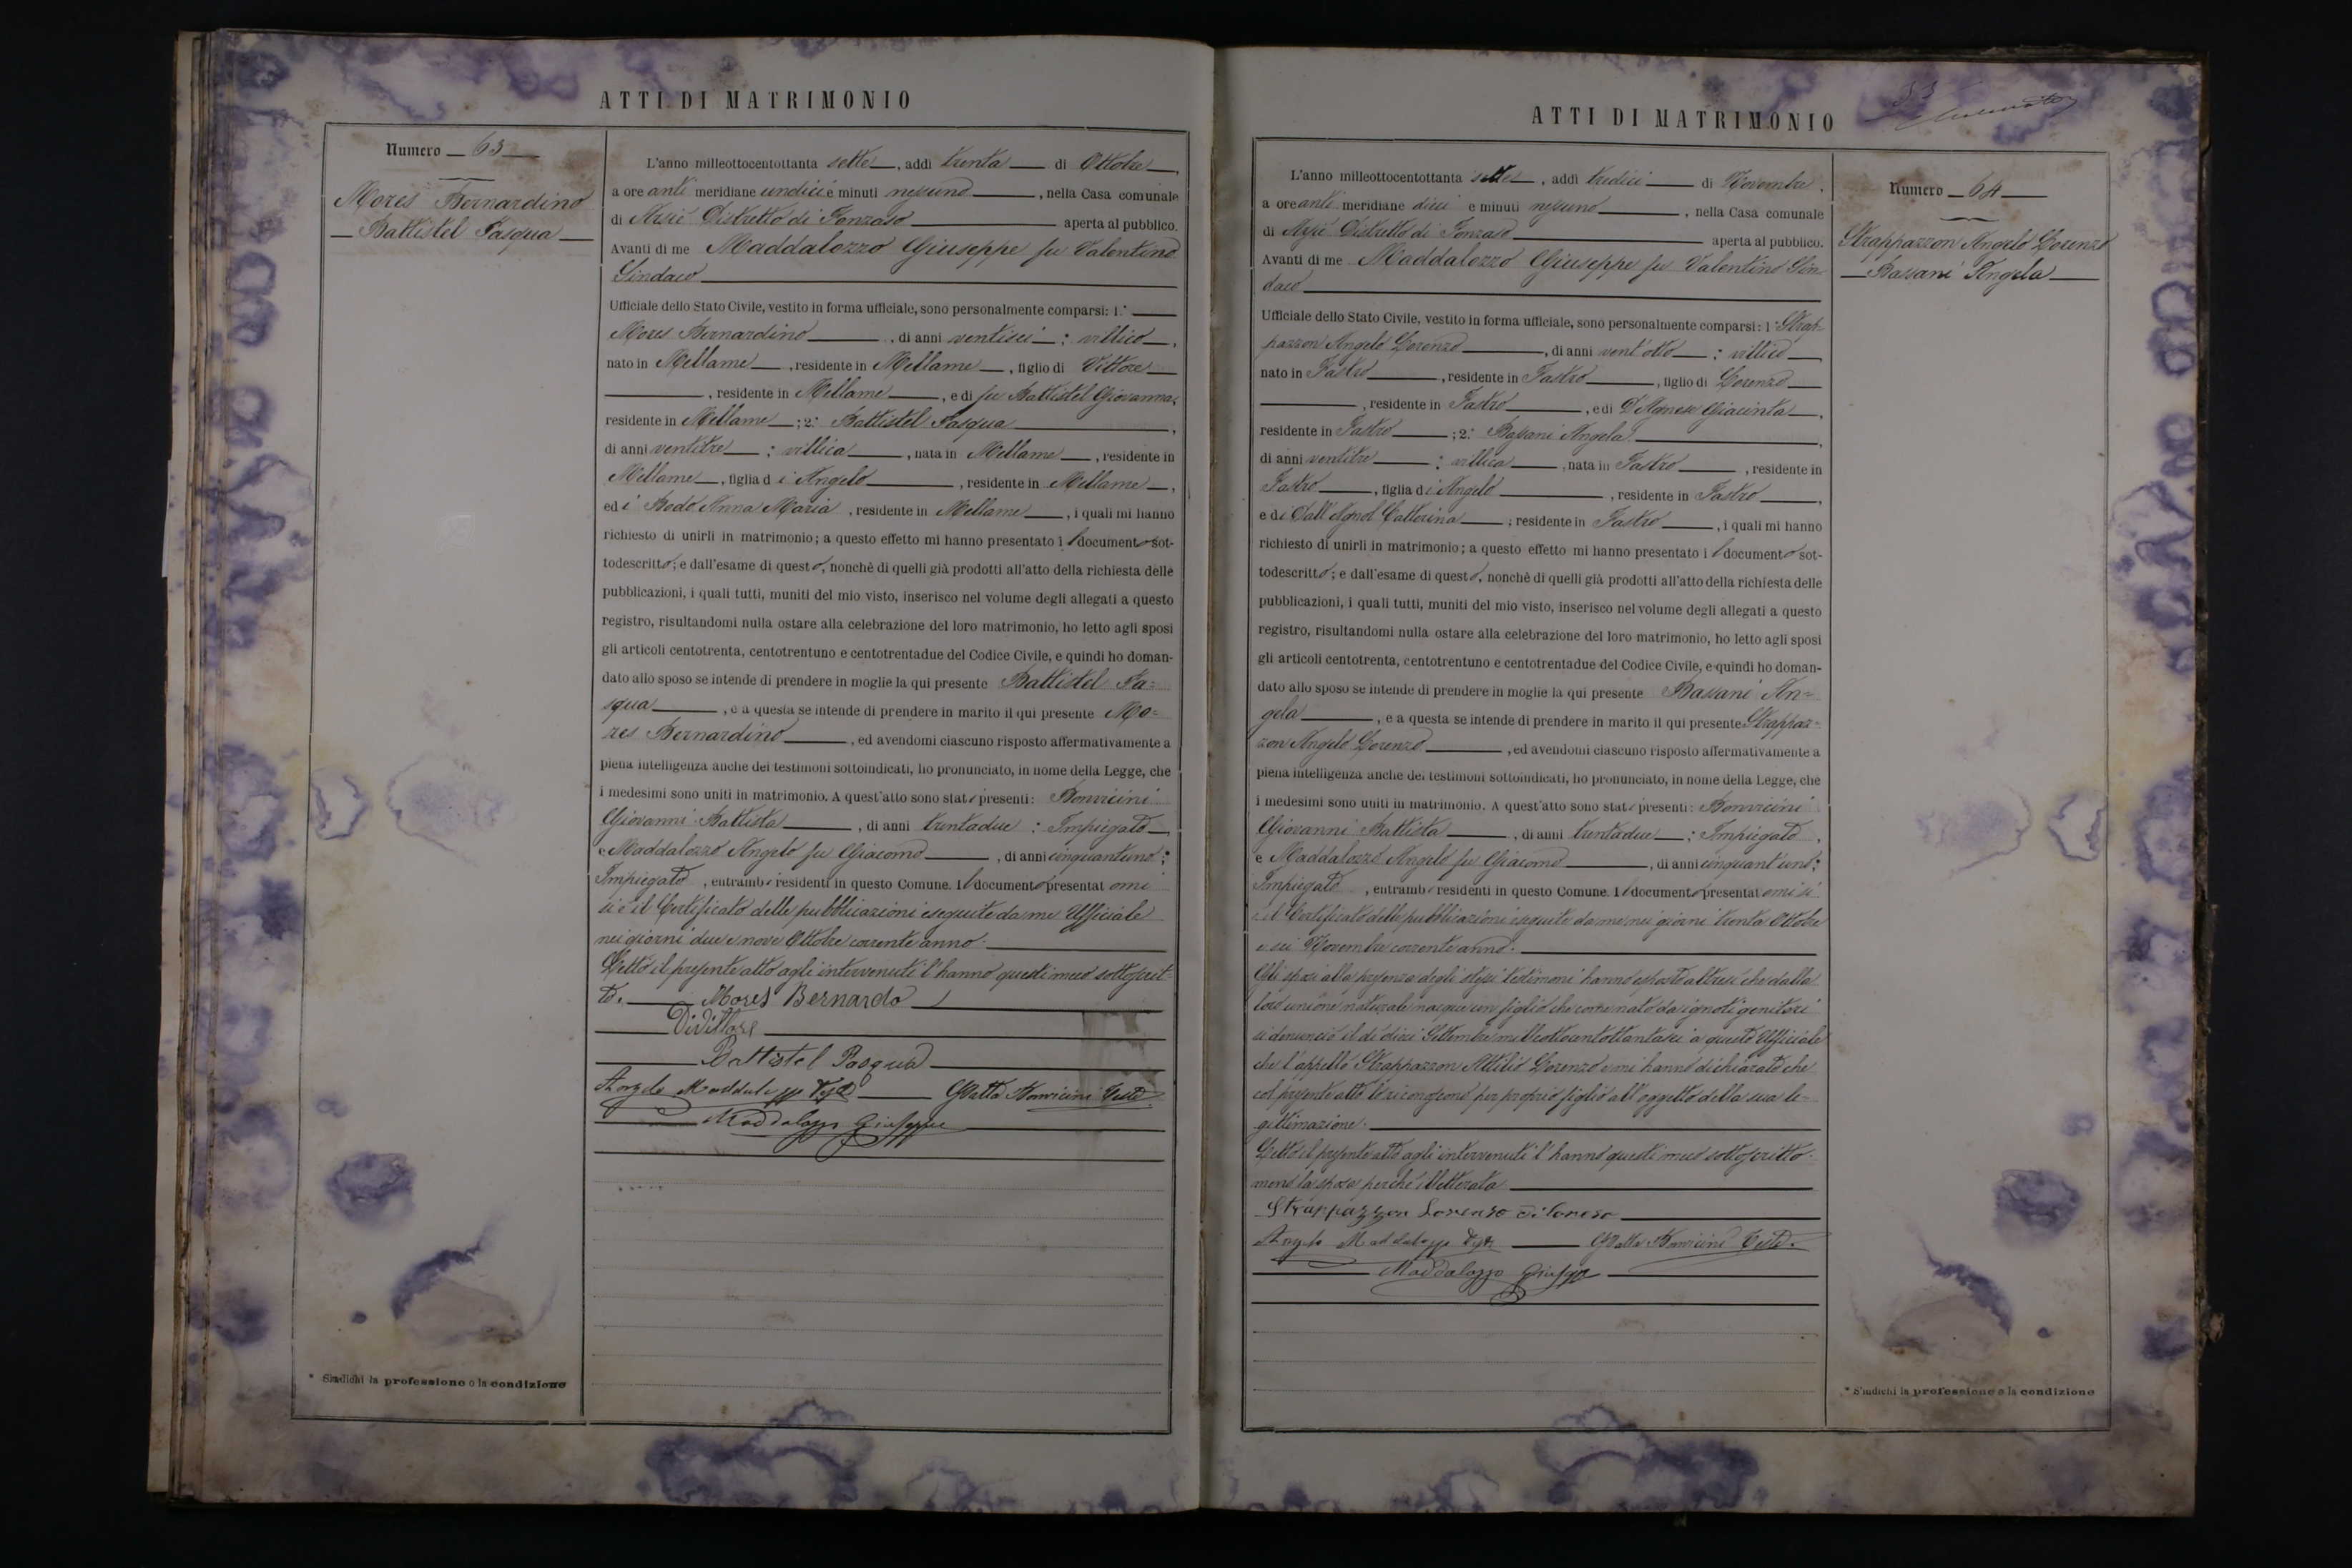 ATTI DI MATRIMONIO
Numero 63
Mores Bernardino
Battistel Pasqua
L'anno milleottocentottanta sette, addì trenta di Ottobre,
a ore anti meridiane undici e minuti nessuno, nella Casa comunale
di Arsiè Distretto di Fonzaso aperta al pubblico.
Avanti di me Maddalozzo Giuseppe fu Valentino
Sindaco
Ufficiale dello Stato Civile, vestito in forma ufficiale, sono personalmente comparsi: 1.°
Mores Bernardino, di anni ventisei; villico,
nato in Mellame, residente in Mellame, figlio di Vittore
, residente in Mellame, e di fu Battistel Giovanna,
residente in Mellame; 2.° Battistel Pasqua,
di anni ventitre; villica, nata in Mellame, residente in
Mellame, figlia di Angelo, residente in Mellame,
ed i Bodo Anna Maria, residente in Mellame, i quali mi hanno
richiesto di unirli in matrimonio; a questo effetto mi hanno presentato il documento sot-
todescritto; e dall'esame di questo, nonchè di quelli già prodotti all'atto della richiesta delle
pubblicazioni, i quali tutti, muniti del mio visto, inserisco nel volume degli allegati a questo
registro, risultandomi nulla ostare alla celebrazione del loro matrimonio, ho letto agli sposi
gli articoli centotrenta, centotrentuno e centotrentadue del Codice Civile, e quindi ho doman-
dato allo sposo se intende di prendere in moglie la qui presente Battistel Pa=
squa, e a questa se intende di prendere in marito il qui presente Mo=
res Bernardino, ed avendomi ciascuno risposto affermativamente a
piena intelligenza anche dei testimoni sottoindicati, ho pronunciato, in nome della Legge, che
i medesimi sono uniti in matrimonio. A quest'atto sono stati presenti: Bonvicini
Giovanni Battista, di anni trentadue; Impiegato,
e Maddalozzo Angelo fu Giacomo, di anni cinquantuno;
Impiegato, entrambi residenti in questo Comune. Il documento presentatomi
si è il Certificato delle pubblicazioni eseguite da me Ufficiale
nei giorni due e nove Ottobre corrente anno.
Letto il presente atto agli intervenuti l'hanno questi meco sottoscrit-
to. Mores Bernardo
Di Vittore
Battistel Pasqua
Angelo Maddalozzo Teste GBatta Bonvicini Teste
Maddalozzo Giuseppe
* S'indichi la professione o la condizione
ATTI DI MATRIMONIO
Numero 64
Strappazzon Angelo Lorenzo
Bassani Angela
L'anno milleottocentottanta sette, addì tredici di Novembre,
a ore anti meridiane dieci e minuti nessuno, nella Casa comunale
di Arsiè Distretto di Fonzaso aperta al pubblico.
Avanti di me Maddalozzo Giuseppe fu Valentino Sin
daco
Ufficiale dello Stato Civile, vestito in forma ufficiale, sono personalmente comparsi: 1.° Strap-
pazzon Angelo Lorenzo, di anni vent'otto; villico,
nato in Fastro, residente in Fastro, figlio di Lorenzo
, residente in Fastro, e di D'Agnese Giacinta,
residente in Fastro; 2.° Bassani Angela,
di anni ventitre; villica, nata in Fastro, residente in
Fastro, figlia di Angelo, residente in Fastro,
e di Dall'Agnol Catterina; residente in Fastro, i quali mi hanno
richiesto di unirli in matrimonio; a questo effetto mi hanno presentato il documento sot-
todescritto; e dall'esame di questo, nonchè di quelli già prodotti all'atto della richiesta delle
pubblicazioni, i quali tutti, muniti del mio visto, inserisco nel volume degli allegati a questo
registro, risultandomi nulla ostare alla celebrazione del loro matrimonio, ho letto agli sposi
gli articoli centotrenta, centotrentuno e centotrentadue del Codice Civile, e quindi ho doman-
dato allo sposo se intende di prendere in moglie la qui presente Bassani An=
gela, e a questa se intende di prendere in marito il qui presente Strappaz=
zon Angelo Lorenzo, ed avendomi ciascuno risposto affermativamente a
piena intelligenza anche dei testimoni sottoindicati, ho pronunciato, in nome della Legge, che
i medesimi sono uniti in matrimonio. A quest'atto sono stati presenti: Bonvicini
Giovanni Battista, di anni trentadue; Impiegato,
e Maddalozzo Angelo fu Giacomo, di anni cinquant'uno;
Impiegato, entrambi residenti in questo Comune. Il documento presentatomi si
è il Certificato delle pubblicazioni eseguite da me nei giorni trenta Ottobre
e sei Novembre corrente anno.
Gli sposi alla presenza degli stessi testimoni hanno esposto altresì che dalla
loro unione naturale nacque un figlio che come nato da ignoti genitori
si denunciò il dì dieci Settembre milleottocentottantasei a questo Ufficiale
che l'appellò Strappazzon Attilio Lorenzo e mi hanno dichiarato che
col presente atto lo riconoscono per proprio figlio all'oggetto della sua le-
gittimazione.
Letto il presente atto agli intervenuti l'hanno questi meco sottoscritto
meno la sposa perchè illetterata
Strappazzon Lorenzo di Lorenzo
Angelo Maddalozzo Teste GBatta Bonvicini Teste
Maddalozzo Giuseppe
* S'indichi la professione o la condizione